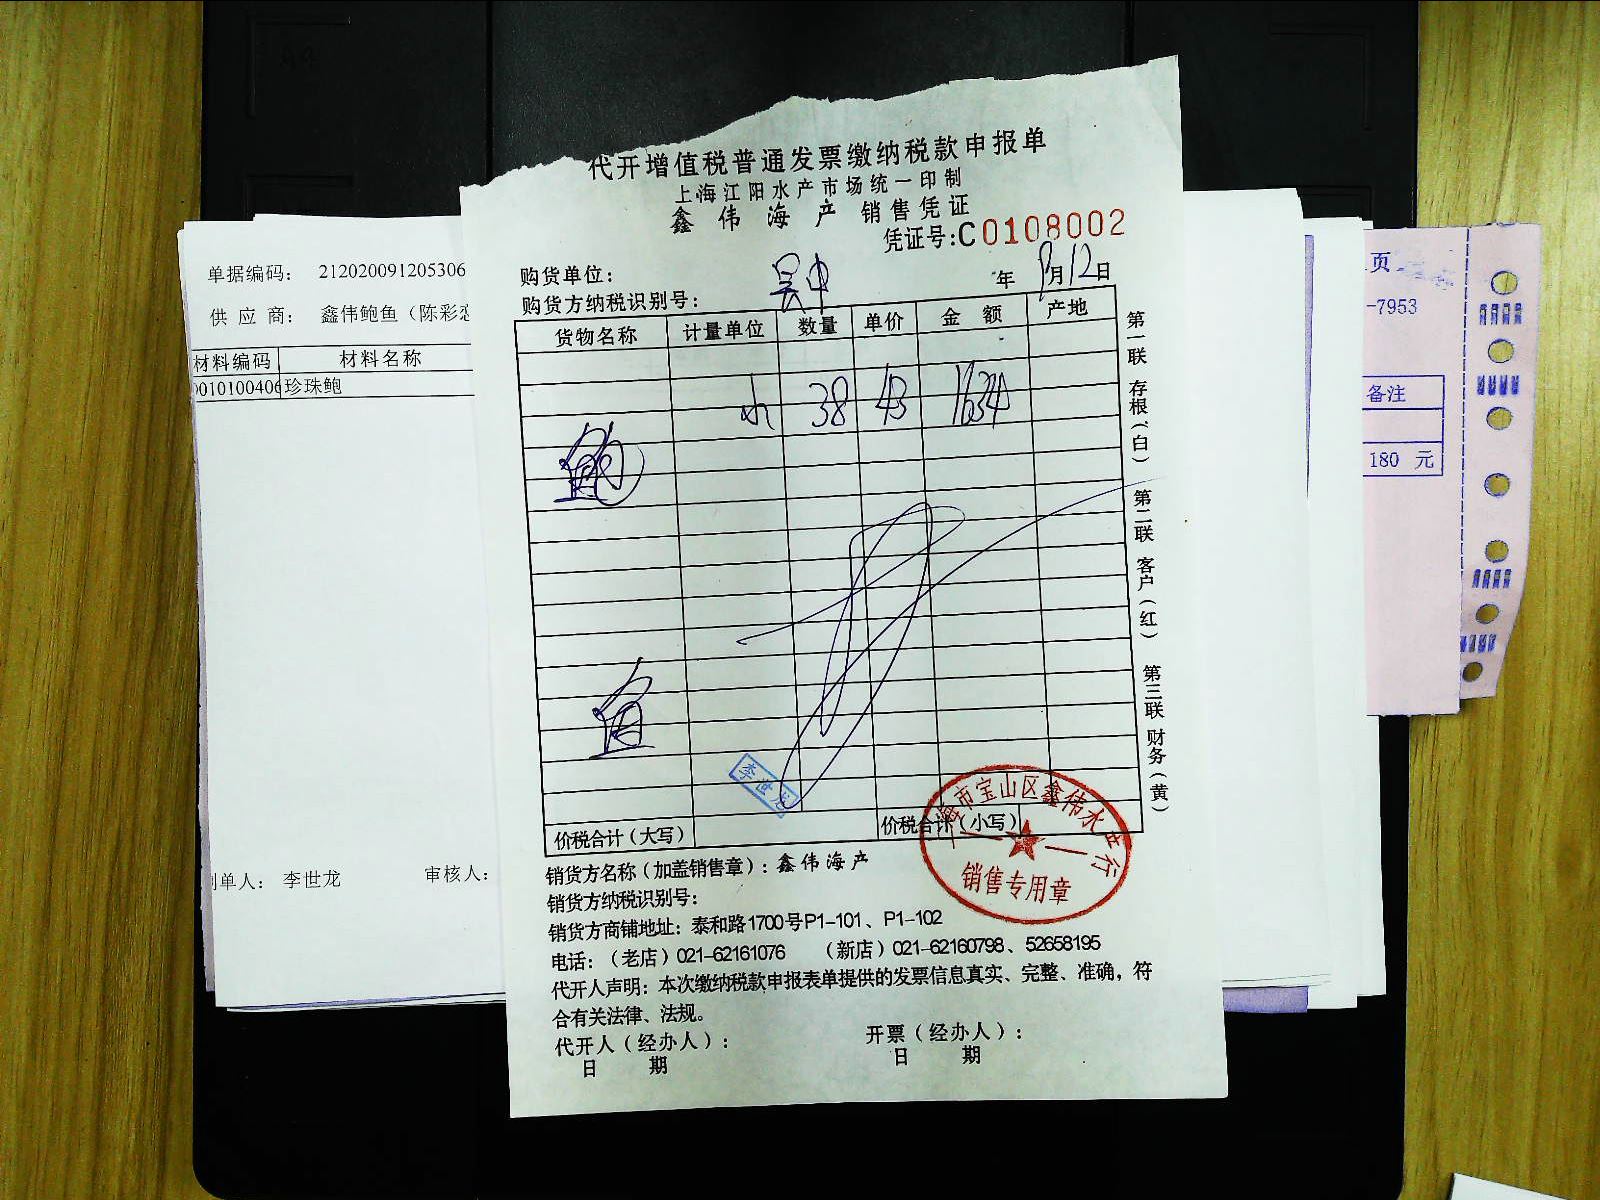 代开增值税普通发票缴纳税款申报单
上海江阳水产市场统一印制
鑫伟海产 销售凭证
凭证号:C0108002
购货单位: 吴中 年9月12日
购货方纳税识别号:
货物名称 计量单位 数量 单价 金额 产地
小 38 43 1634
鲍
李世龙
价税合计（大写） 价税合计（小写）
销货方名称（加盖销售章）: 鑫伟海产
销货方纳税识别号:
销货方商铺地址: 泰和路1700号P1-101、P1-102
电话:（老店）021-62161076 （新店）021-62160798、52658195
代开人声明: 本次缴纳税款申报表单提供的发票信息真实、完整、准确，符
合有关法律、法规。
代开人（经办人）: 开票（经办人）:
日 期 日 期
第一联 存根（白） 第二联 客户（红） 第三联 财务（黄）
海市宝山区鑫伟水产行
销售专用章
单据编码: 212020091205306
供应商: 鑫伟鲍鱼（陈彩恋
材料编码 材料名称
010100406 珍珠鲍
制单人: 李世龙 审核人:
页
-7953
备注
180 元